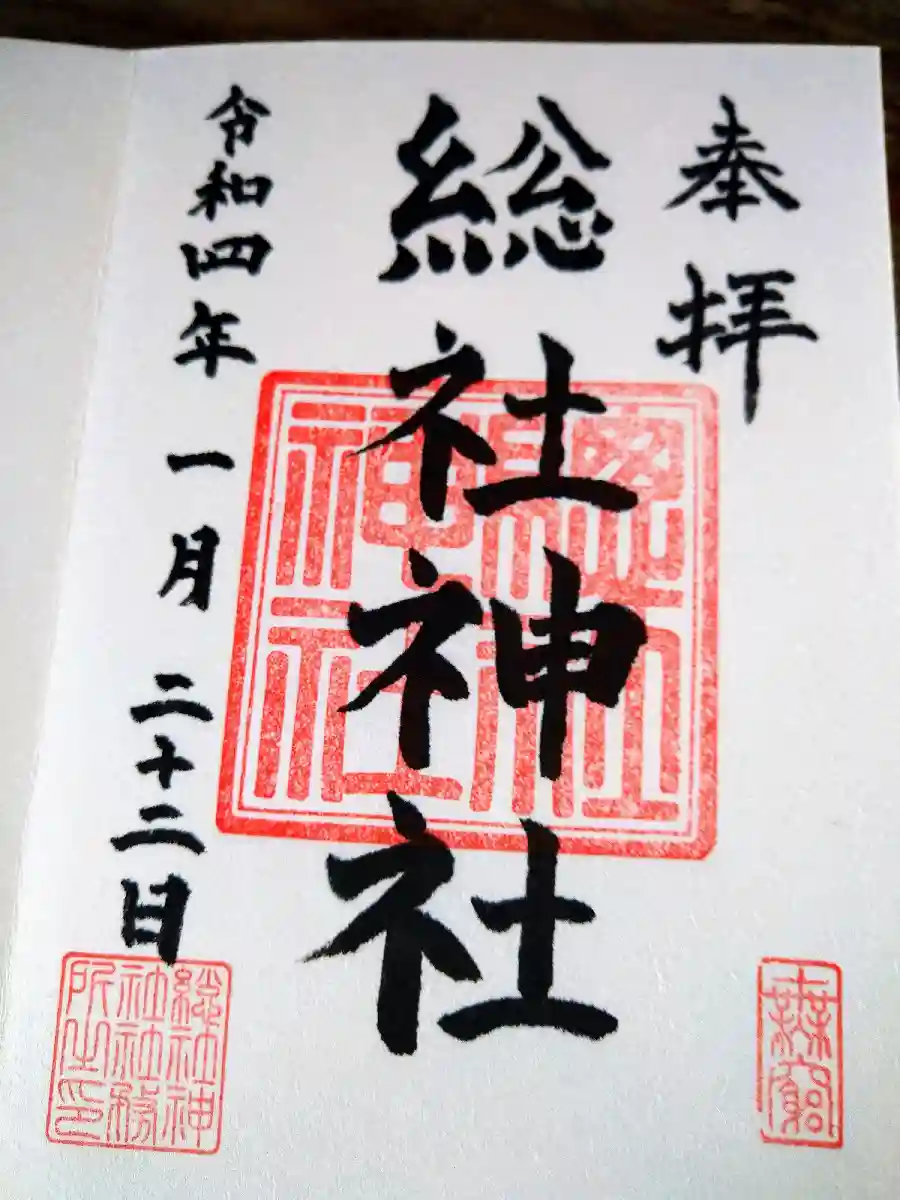 奉拝
総社神社
令和四年一月二十二日
總社
神社
総社神
社社務
所之印